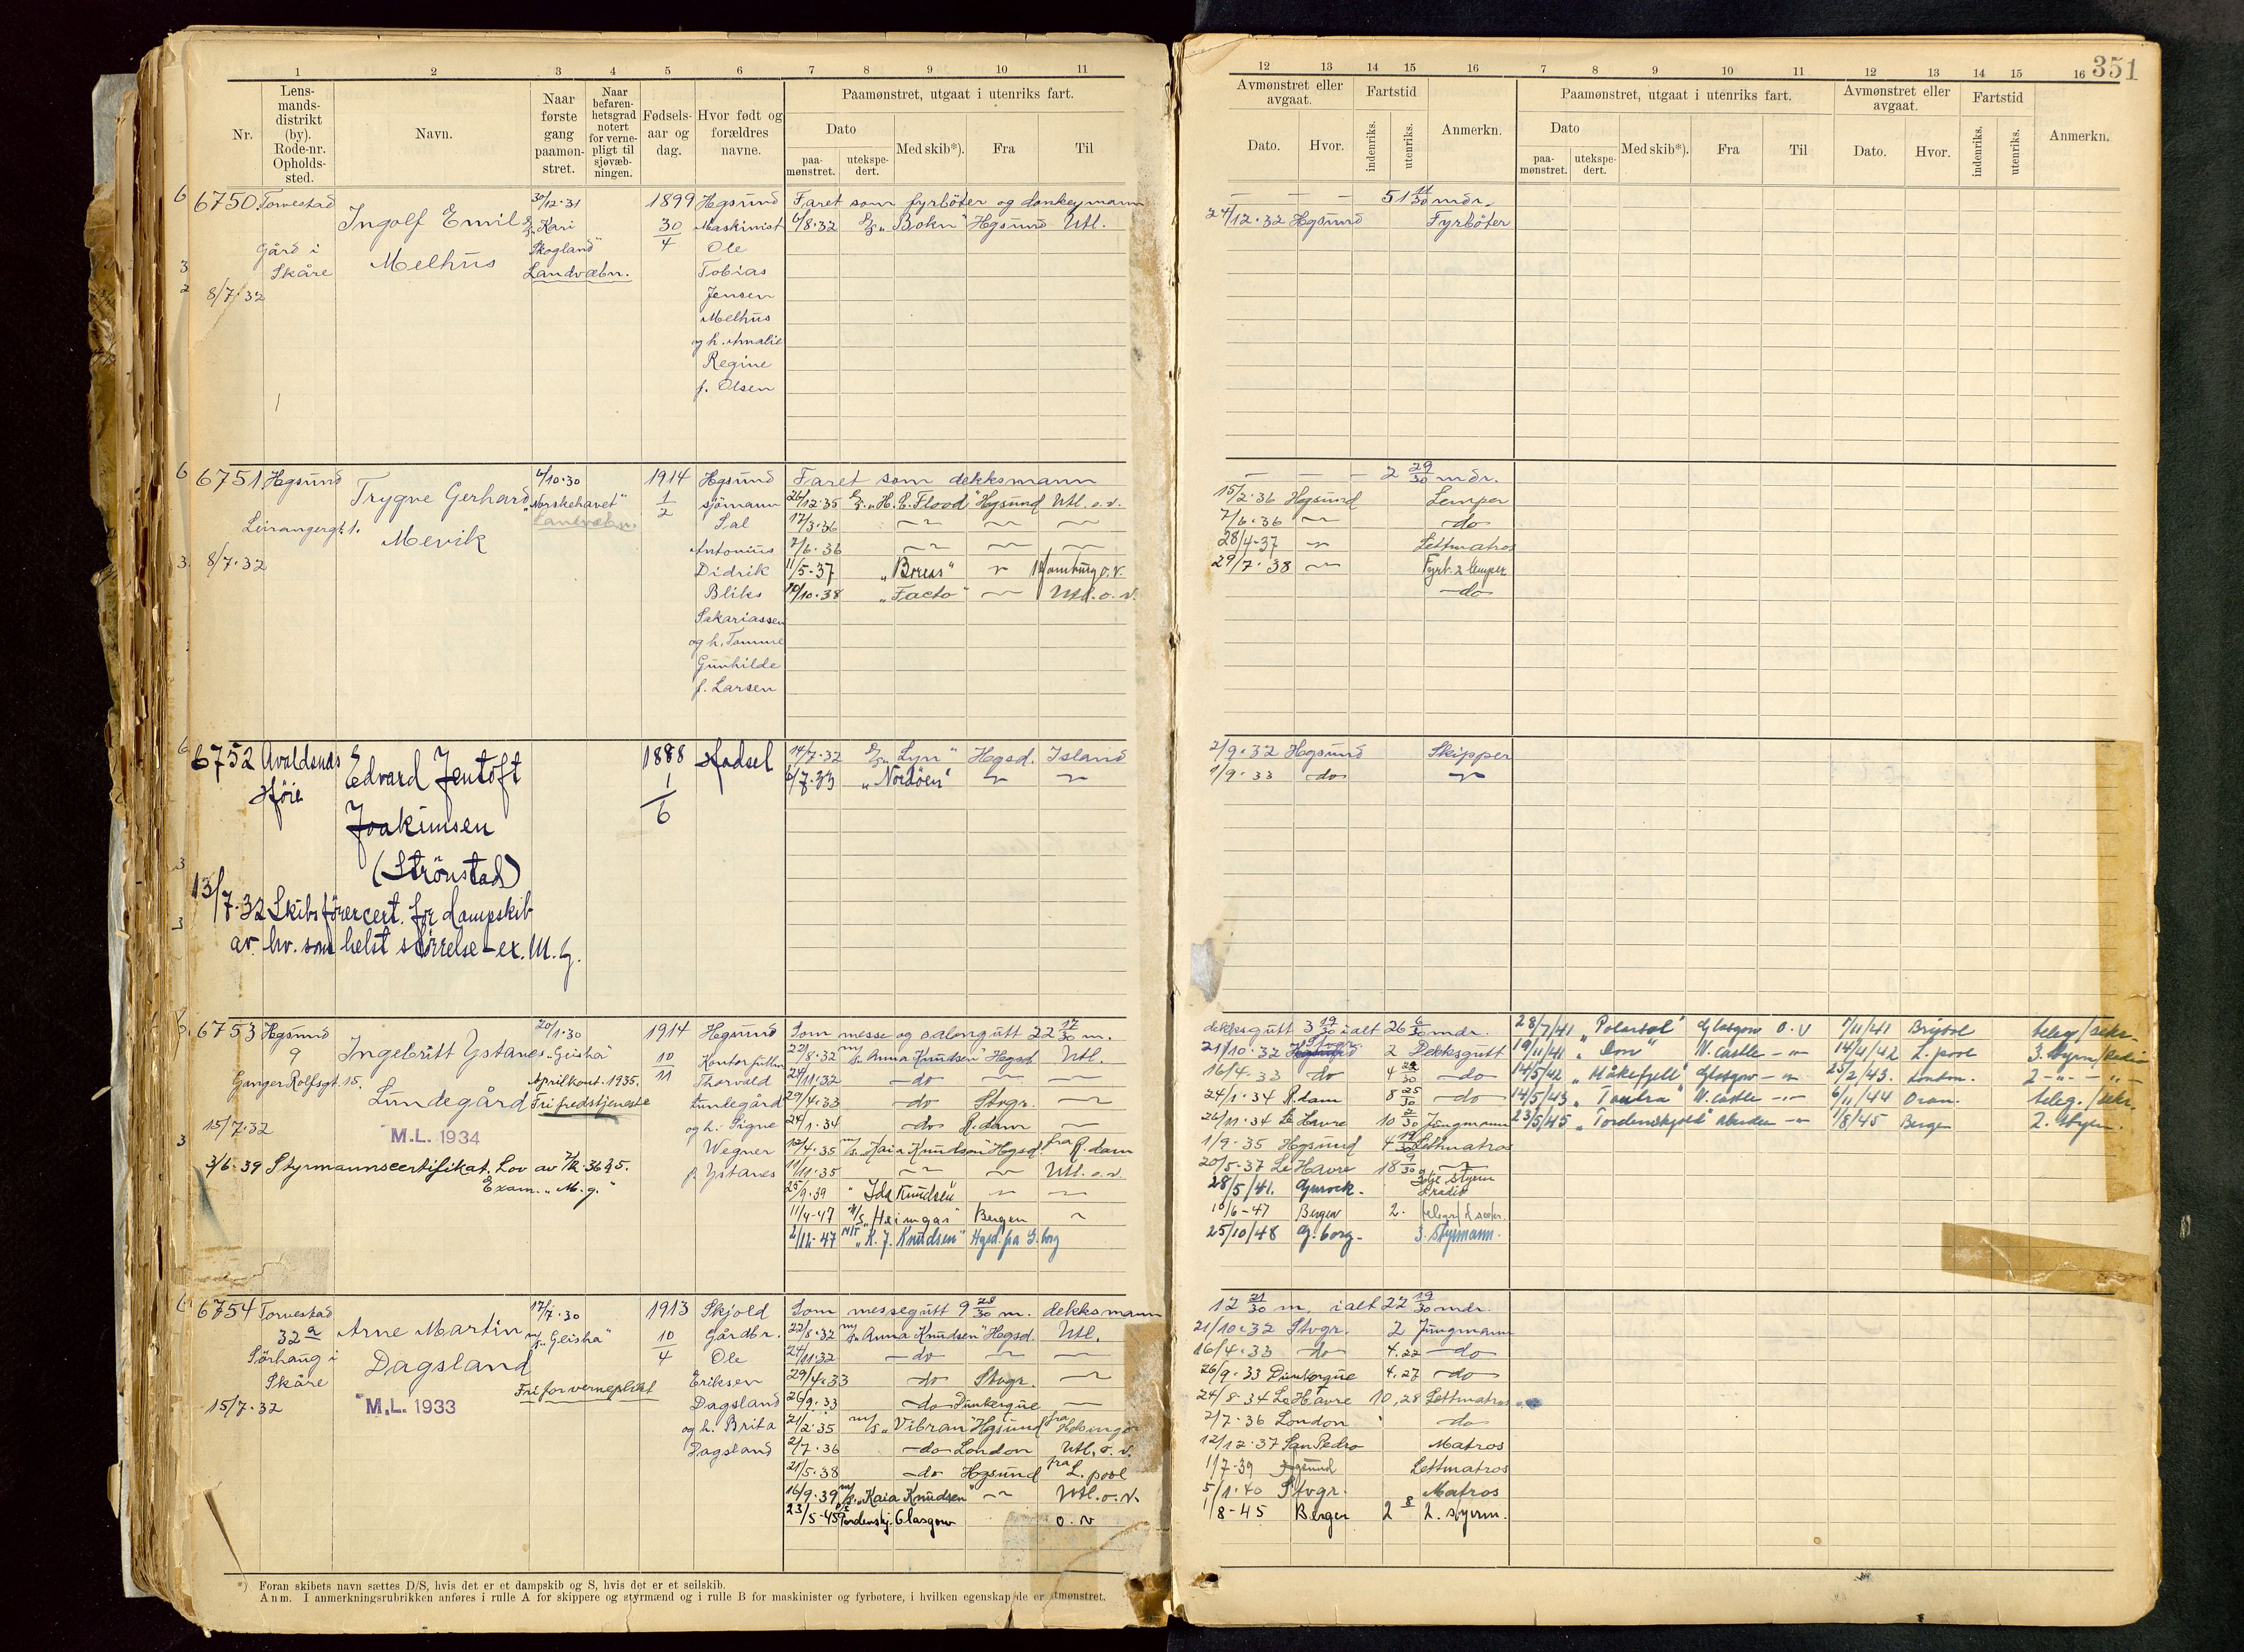 351
1 2 3 4 5 6 7 8 9 10 11
Nr.
Lens-
mands-
distrikt
(by).
Rode-nr.
Opholds-
sted.
Navn.
Naar
første
gang
paamøn-
stret.
Naar
befaren-
hetsgrad
notert
for verne-
pligt til
sjøvæb-
ningen.
Fødsels-
aar og
dag.
Hvor født og
forældres
navne.
Paamønstret, utgaat i utenriks fart.
Dato
paa-
mønstret.
utekspe-
dert.
Med skib*).
Fra
Til
12 13 14 15 16 7 8 9 10 11 12 13 14 15 16
Avmønstret eller
avgaat.
Dato.
Hvor.
Fartstid
indenriks.
utenriks.
Anmerkn.
Paamønstret, utgaat i utenriks fart.
Dato
paa-
mønstret.
utekspe-
dert.
Med skib*).
Fra
Til
Avmønstret eller
avgaat.
Dato.
Hvor.
Fartstid
indenriks.
utenriks.
Anmerkn.
6750 Torvestad
Gård i
Skåre
8/7.32
Ingolf Emil
Melhus
30/12.31
Kari
Skogland"
Landvæbn.
1899
30/4
Hgsund
Maskinist
Ole
Tobias
Jensen
Melhus
og h. Amalie
Regine
f. Olsen
Faret som fyrbøter og donkeymann
6/8.32 D/S „Bokn" Hgsund Utl.
— — — 51 11/30 mdr.
24/12.32 Hgsund Fyrbøter
6751 Hgsund
8/7.32
Trygve Gerhard
Mevik
6/10.30
„Norskehavet"
Landvæbn.
1914
1/2
Hgsund
sjømann
Sal
Antonius
Didrik
Bliks
Sakariassen
og h. Tomine
Gunhilde
f. Larsen
Faret som dekksmann
24/12.35 D/S „H. C. Flood" Hgsund Utl. o.v.
17/3.36
7/6.36
11/5.37 „Boreas" Hamburg o.v.
„Facto" Utl. o. v.
— — — 2 29/30 mdr.
15/2.36 Hgsund Lemper
7/6.36 do
28/4-37 Lettmatros
29/7.38 Fyrb. & lemper
do
6752 Avaldsnes
Edvard Jentoft
Joakimsen
(Strönstad)
1888
1/6
Hadsel
14/7.32 D/S „Lyn" Hgsd. Island
6/7.33 „Nordöen"
2/9.32 Hgsund Skipper
1/9.33 do
13/7.32 Skibsförercert. for dampskib
av hv. som helst störrelse – ex. M. G.
6753 Hgsund
9
Ganger Rolfsgt. 15.
15/7.32
Ingebritt Ystanes
Lundegård
M.L. 1934
20/1.30
„Geisha"
Aprilkont. 1935.
Fri fredstjeneste
1914
10/11
Hgsund
Kontorfullm.
Thorvald
Lundegård
og h. Signe
Wegner
f. Ystanes
3/6.39 Styrmannscertifikat. Lov av
Exam. „M.g."
Som messe og salongutt 22 17/30 m.
22/8.32 m/s „Anna Knudsen" Hgsd. Utl.
24/11.32 do
29/4.33 do Stvgr.
24/1.34 do R.dam
12/4.35 m/s „Kaia Knudsen" Hgsd. fra R.dam
11/11.35 Utl. o.v.
25/9.39 " Ida Knudsen
11/4-47 M/S „Heimgar" Bergen
2/12-47 M/T „K. J. Knudsen" Hgsd. fra G.borg
dekksgutt 3 19/30 ialt 26 6/30 mdr.
21/10.32 Stvgr. 2 Dekksgutt
16/4.33 do 4 22/30 do
24/1.34 R.dam 8 25/30 do
26/11.34 Le Havre 10 2/30 Jungmann
1/9.35 Hgsund 4 19/30 Lettmatros
20/5-37 Le Havre 18 9/30
28/5/41. Gourock.
16/6-47 Bergen 2.
25/10/48 G.borg 3. styrmann.
28/7/41 „Polarsol" Glasgow O.V 7/11/41 Bristol teleg/sekr.
19/11/41 „Don" N.Castle 14/4/42 L.pool 3. styrm/radio
14/5/42 „Håkefjell" Glasgow 25/2/43. London. 2
14/5/43 „Tondra" N.Castle 6/11/44 Oran. teleg./sekr.
23/5/45 „Tordenskjold" Aberdeen 1/8/45 Bergen 2. styrm.
6754 Torvestad
32 a
Sørhaug i
Skåre
15/7.32
Arne Martin
Dagsland
M.L. 1933
17/7.30
m/s „Geisha"
Fri for verneplikt
1913
10/4
Skjold
Gårdbr.
Ole
Eriksen
Dagsland
og h. Brita
Dagsland
Som messegutt 9 28/30 m. dekksmann
22/8.32 m/s „Anna Knudsen" Hgsd. Utl.
24/11.32 do
29/4.33 do Stvgr.
26/9.33 do Dunkerque
21/2.35 m/s „Vibran" Hgsund fra Helsingør
2/7.36 do London Utl. o. v.
21/5.38 do Hgsund fra L.pool
16/9.39 m/s „Kaia Knudsen" Utl. o. v.
23/5-45 Tordenskj. Glasgow o. v
12 21/30 m. ialt 22 19/30 mdr.
21/10.32 Stvgr. 2 Jungmann
16/4.33 do 4.22 do
26/9.33 Dunkerque 4.27 do
24/8-34 Le Havre 10,28 Lettmatros
2/7.36 London do
12/12.37 San Pedro Matros
1/7-39 Hgsund Lettmatros
5/1.40 Stvgr. Matros
1/8-45 Bergen 2 8 2. styrm.
*) Foran skibets navn sættes D/S, hvis det er et dampskib og S, hvis det er et seilskib.
Anm. I anmerkningsrubrikken anføres i rulle A for skippere og styrmænd og i rulle B for maskinister og fyrbøtere, i hvilken egenskap de er utmønstret.